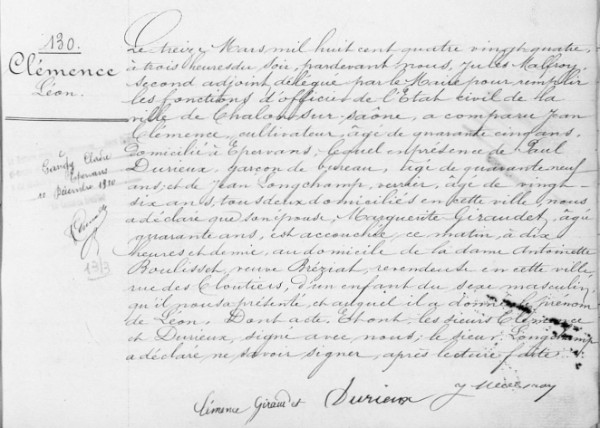 130.
Clémence
Léon.
Le treize Mars mil huit cent quatre vingt quatre,
à trois heures du soir, pardevant nous, Jules Malfroy,
second adjoint délégué par le Maire pour remplir
les fonctions d'officier de l'Etat civil de la
ville de Chalon sur Saône, a comparu Jean
Clémence, cultivateur, âgé de quarante cinq ans,
domicilié à Epervans, lequel en présence de Paul
Durieux, garçon de bureau, âgé de quarante neuf
ans, et de Jean Longchamp, verrier, âgé de vingt-
six ans, tous deux domiciliés en cette ville, nous
a déclaré que son épouse, Marguerite Giraudet, âgée
quarante ans, est accouchée ce matin, à dix
heures et demie, au domicile de la dame Antoinette
Boulisset, veuve Bréziat, revendeuse en cette ville,
rue des Cloutiers, d'un enfant du sexe masculin,
qu'il nous a présenté, et auquel il a donné le prénom
de Léon. Dont acte. Et ont les sieurs Clémence
et Durieux, signé avec nous; le sieur Longchamp
a déclaré ne savoir signer, après lecture faite.
Clémence Giraudet Durieux
Décembre 1920
13/3